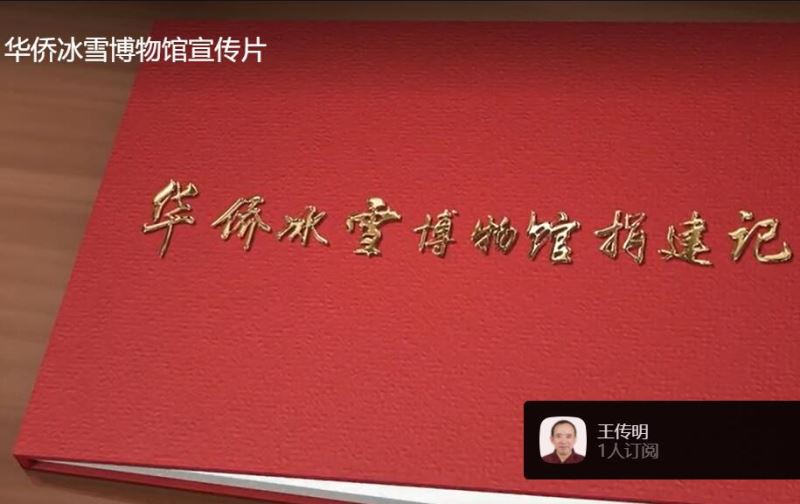 华侨冰雪博物馆宣传片
华侨冰雪博物馆捐建记
王传明
1人订阅